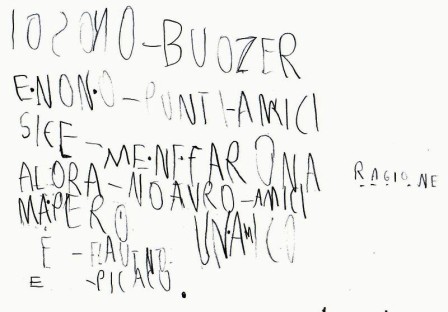 IO SONO-BUOZER
E·NON·O-PUNTI-AMICI
SIEE-ME·NE·FARO NA
RAGIONE
ALORA-NO AVRO-AMICI
MAPERO UN·AMICO
È
E -PICALO.